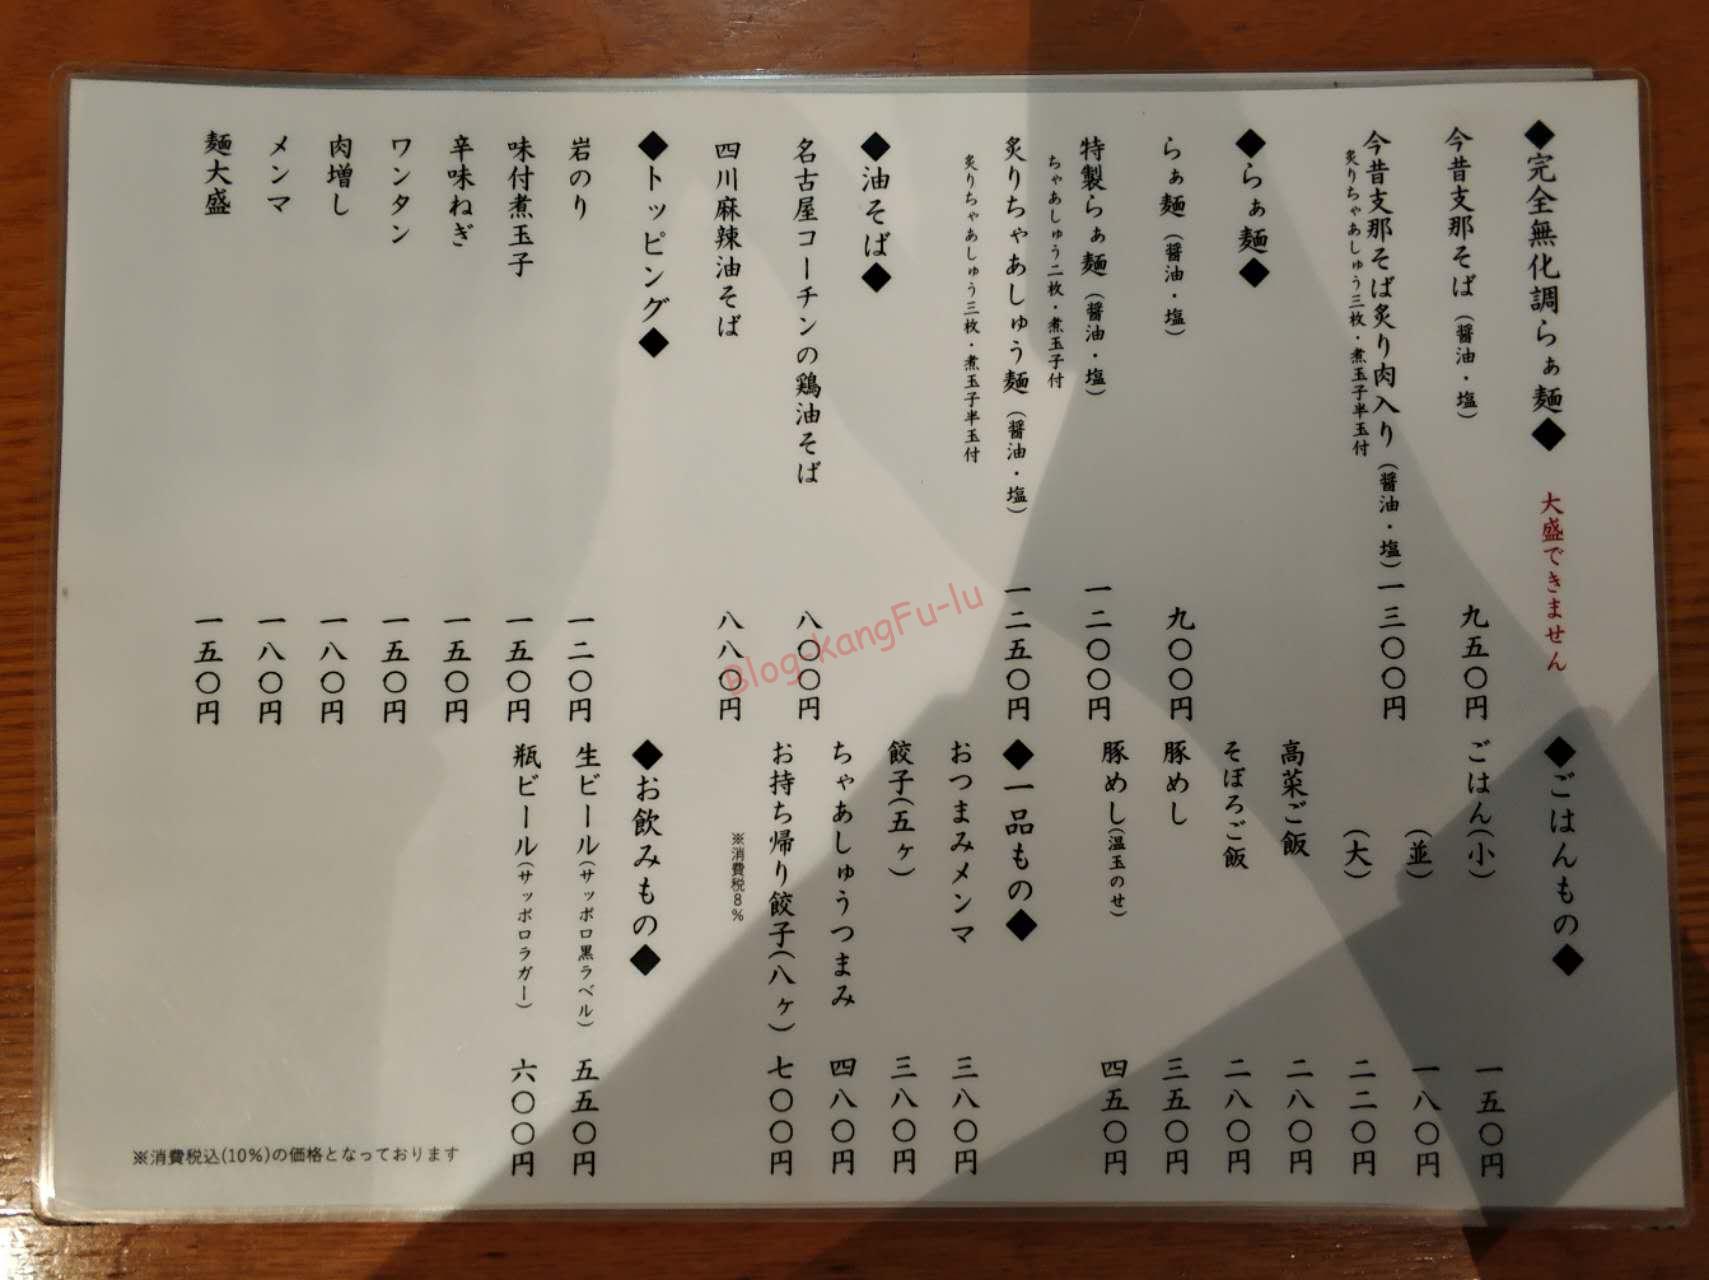 ◆完全無化調らぁ麺◆ 大盛できません
今昔支那そば（醤油・塩） 九五〇円
今昔支那そば炙り肉入り（醤油・塩） 一三〇〇円
炙りちゃあしゅう三枚・煮玉子半玉付
◆らぁ麺◆
らぁ麺（醤油・塩） 九〇〇円
特製らぁ麺（醤油・塩） 一二〇〇円
ちゃあしゅう二枚・煮玉子付
炙りちゃあしゅう麺（醤油・塩） 一二五〇円
炙りちゃあしゅう三枚・煮玉子半玉付
◆油そば◆
名古屋コーチンの鶏油そば 八〇〇円
四川麻辣油そば 八八〇円
◆トッピング◆
岩のり 一二〇円
味付煮玉子 一五〇円
辛味ねぎ 一五〇円
ワンタン 一五〇円
肉増し 一八〇円
メンマ 一八〇円
麺大盛 一五〇円
◆ごはんもの◆
ごはん（小） 一五〇円
（並） 一八〇円
（大） 二二〇円
高菜ご飯 二八〇円
そぼろご飯 二八〇円
豚めし 三五〇円
豚めし（温玉のせ） 四五〇円
◆一品もの◆
おつまみメンマ 三八〇円
餃子（五ヶ） 三八〇円
ちゃあしゅうつまみ 四八〇円
お持ち帰り餃子（八ヶ） 七〇〇円
※消費税8%
◆お飲みもの◆
生ビール（サッポロ黒ラベル） 五五〇円
瓶ビール（サッポロラガー） 六〇〇円
※消費税込(10%)の価格となっております
Blog-kangFu-lu